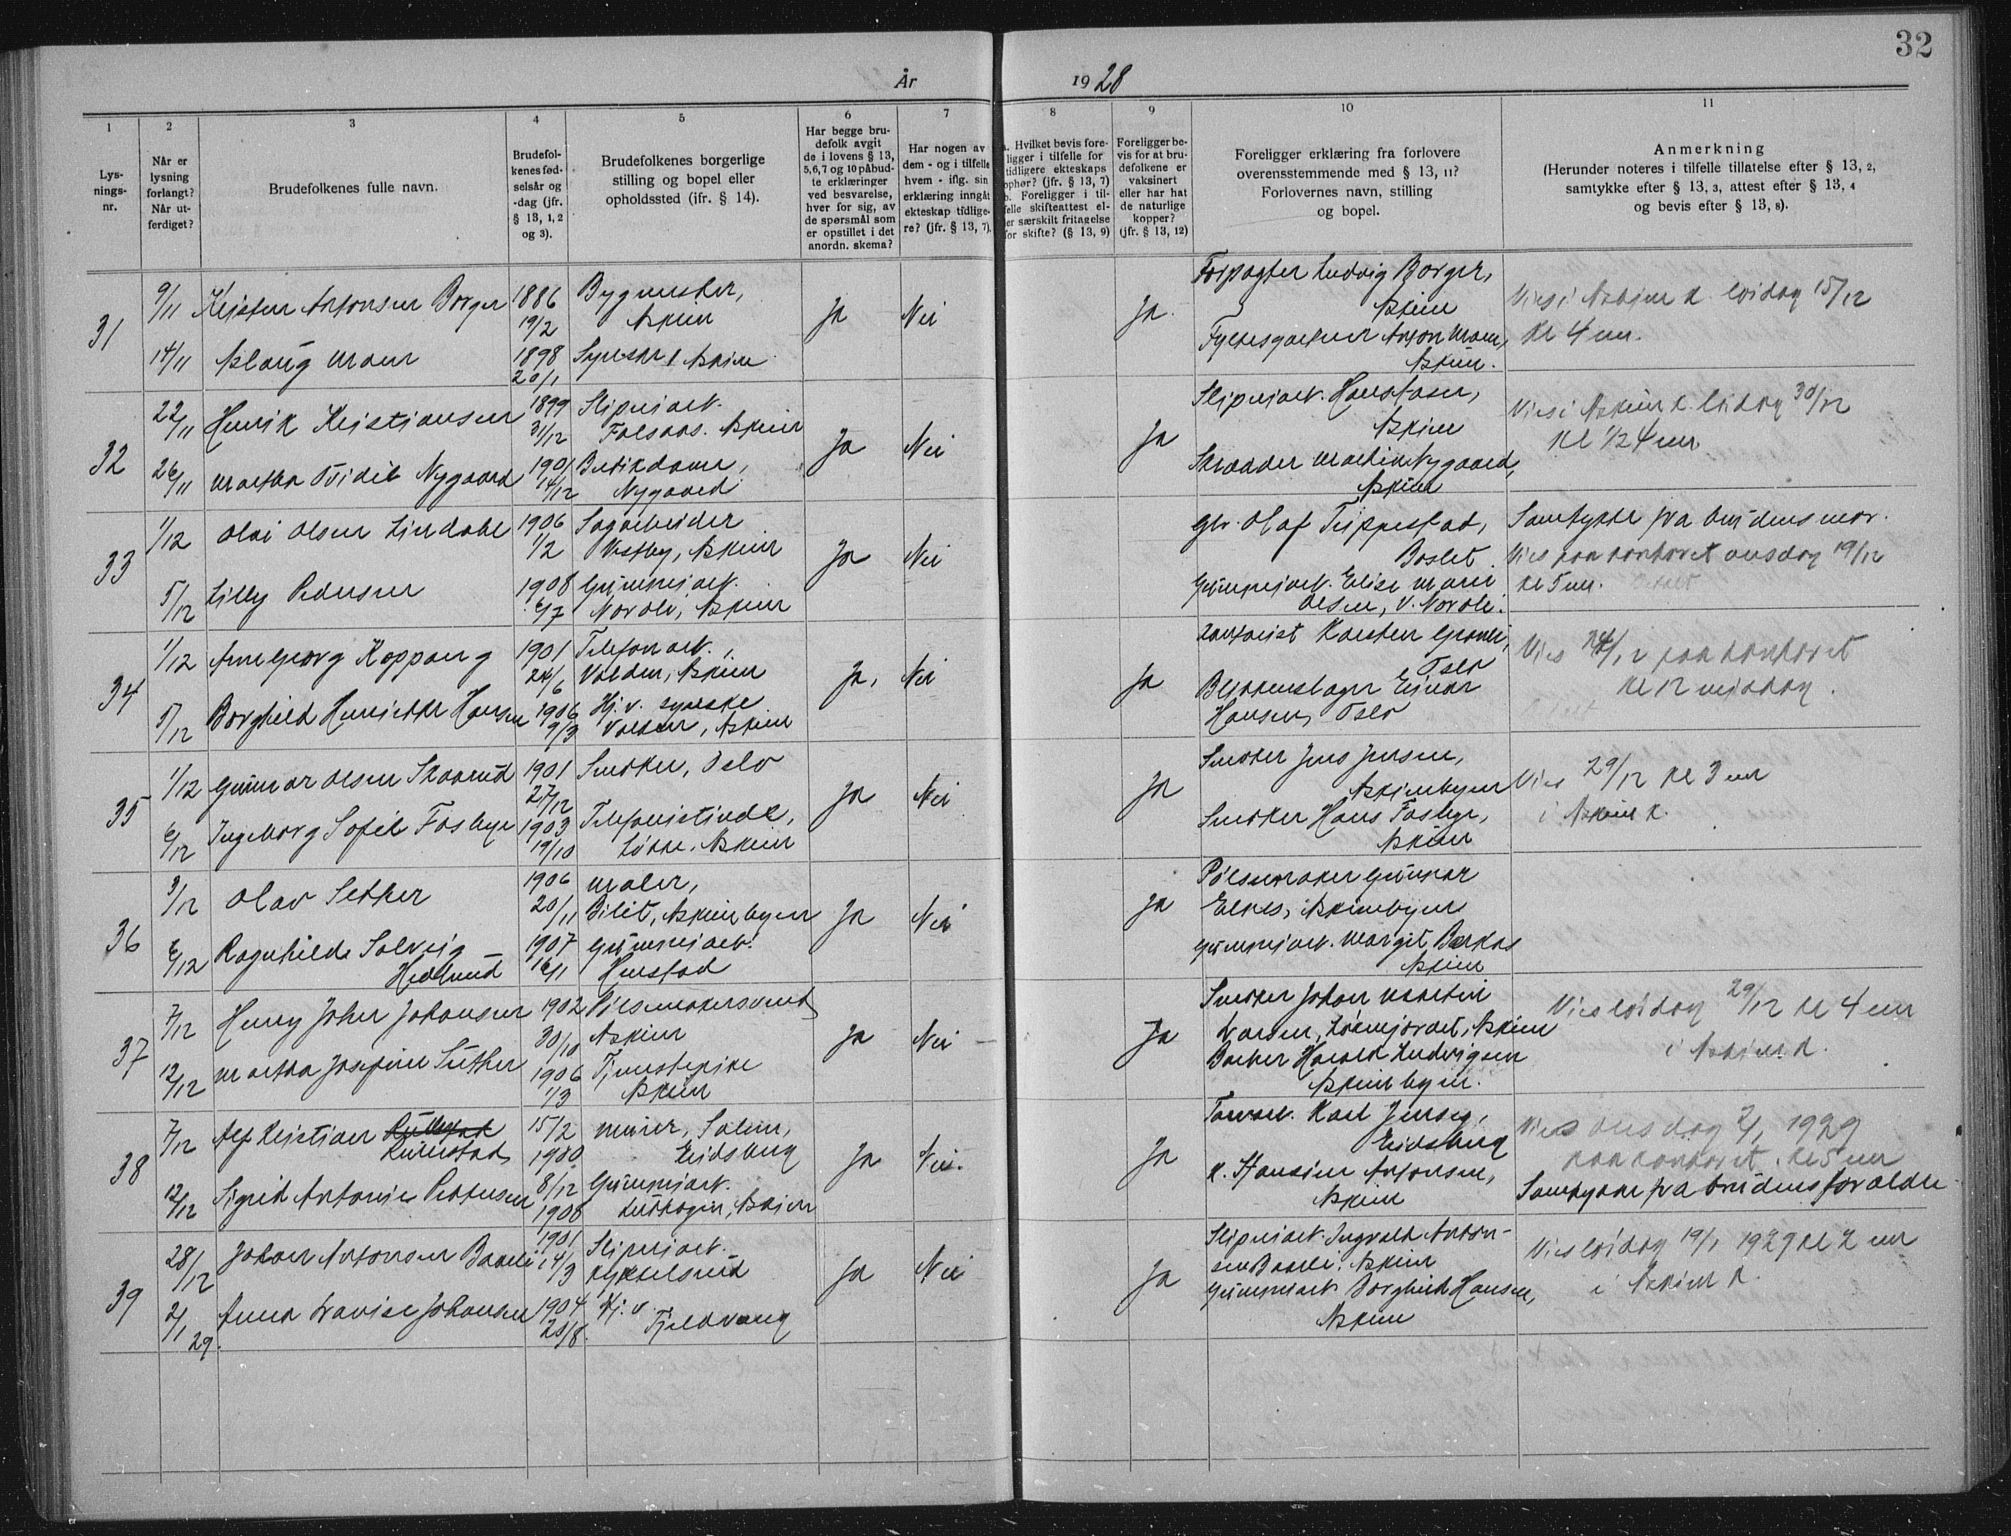 32
År 1928
1
2
3
4
5
6
7
8
9
10
11
Lys-
nings-
nr.
Når er
lysning
forlangt?
Når ut-
ferdiget?
Brudefolkenes fulle navn.
Brudefol-
kenes fød-
selsår og
-dag (jfr.
§ 13, 1, 2
og 3).
Brudefolkenes borgerlige
stilling og bopel eller
opholdssted (ifr. § 14).
Har begge bru-
defolk avgit
de i lovens § 13,
5,6,7 og 10 påbud-
te erklæringer
ved besvarelse,
hver for sig, av
de spørsmål som
er opstillet i det
anordn. skema?
Har nogen av
dem - og i tilfelle
hvem - iflg. sin
erklæring inngåt
ekteskap tidlige-
re? (jfr. § 13, 7).
a. Hvilket bevis fore-
ligger i tilfelle for
tidligere ekteskaps
ophør? (jfr. § 13, 7)
b. Foreligger i til-
felle skifteattest el-
ler særskilt fritagelse
for skifte? (§ 13, 9)
Foreligger be-
vis for at bru-
defolkene er
vaksinert
eller har hat
de naturlige
kopper?
(jfr. § 13, 12)
Foreligger erklæring fra forlovere
overensstemmende med § 13, 11?
Forlovernes navn, stilling
og bopel.
Anmerkning
(Herunder noteres i tilfelle tillatelse efter § 13, 2,
samtykke efter § 13, 3, attest efter § 13, 4
og bevis efter § 13, 8).
31
9/11
Kristen Antonsen Borger
1886
19/2
Bygmester,
Askim
14/11
Aslaug Moen
1898
20/1
Syerske, Askim
Ja
Nei
Ja.
Forpagter Ludvig Borger,
Askim
Anton Moen,
Askim.
Vies i Askim k. lördag 15/12
kl 4 em.
32
22/11
Henrik Kristiansen
1899
31/12
Sliperiarb.
Askim
26/11
Martha Nygaard
1901
14/12
Butikdame,
Nygaard
Ja
Nei
Ja
Sliperiarb.
Askim
Skrædder Martin Nygaard,
Askim
Vies i Askim k. lördag 30/12
kl 1/2 4 em
33
1/12
Olai Olsen Lindahl
1906
1/2
Sagarbeider
Vestby, Askim
5/12
Lilly Pedersen
1908
6/7
Gummiarb.
Nordli, Askim
Ja
Nei
Olaf Trippestad,
Gummiarb. Elise Marie
Olsen, v. Nordli.
Samtykke fra brudens mor.
Vies paa kontoret onsdag 19/12
kl 5 em.
34
1/12
Arne Georg Koppang
1901
24/6
Telefonarb.,
Volden, Askim
5/12
Borghild Henriette Hansen
1906
9/3
Hj. v. syerske
Volden, Askim
Ja,
Nei
Ja
Karsten
Oslo
Blikkenslager Einar
Hansen, Oslo
Vies 24/12 paa kontoret
kl 12 middag.
35
1/12
Gunnar Olsen Skaarud
1901
27/12
Snekker, Oslo
6/12
Ingeborg Sofie Fosbye
1903
19/10
Telefonistinde,
Løkke, Askim
Ja
Nei
Ja
Snekker Jens Jensen,
Askimbyen
Snekker Hans Fosbye,
Askim
Vies 29/12 kl 3 em
i Askim k.
36
3/12
Olav Sether
1906
20/11
Maler,
Askimbyen
6/12
Ragnhilda Solveig
Hedlund
1907
Gummiarb.
Henstad
Ja
Nei
Ja
Pølsemaker Gunnar
Askimbyen
Gummiarb. Margit
Askim
37
7/12
Henry Johan Johansen
1902
30/10
Pølsemakersvend
Askim
12/12
Martha Josefine Sæther
1906
1/3
Tjenestepike
Askim
Ja
Nei
Ja
Snekker Johan Martin
Larsen, Askim
Baker Harald Ludvigsen
Askimbyen.
Vies lördag 29/12 kl 4 em
i Askim k.
38
7/12
Alf Kristian
Rudestad
15/2
1900
Meier,
Eidsberg
12/12
Sigrid Antonie Pettersen
8/12
1908
Gummiarb.
Askim
Ja
Nei.
Ja
Karl Jensen,
Eidsberg
Antonsen,
Askim
Vies onsdag 2/1 1929
paa kontoret kl 5 em
Samtykke fra brudens forældre
39
28/12
Johan Antonsen Baseli
1901
14/3
Sliperiarb.
2/1 29.
Anna Lovise Johansen
1904
20/8
Hj. v.
Fjeldvang
Ja
Nei
Ja
Sliperiarb. Ingvald Anton-
sen Baseli, Askim
Gummiarb. Borghild Hansen,
Askim
Vies lördag 19/1 1929 kl 2 em
i Askim k.